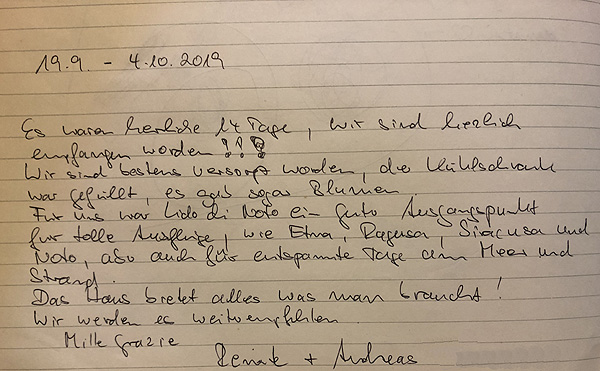 19.9. - 4.10.2019
Es waren herrliche 14 Tage, wir sind herzlich
empfangen worden !!!
Wir sind bestens versorgt worden, die Kühlschrank
war gefüllt, es gab sogar Blumen.
Für uns war Lido di Noto ein guter Ausgangspunkt
für tolle Ausflüge, wie Etna, Ragusa, Siracusa und
Noto, aber auch für entspannte Tage am Meer und
Strand.
Das Haus bietet alles was man braucht!
Wir werden es weiterempfehlen.
Mille Grazie
Renate + Andreas